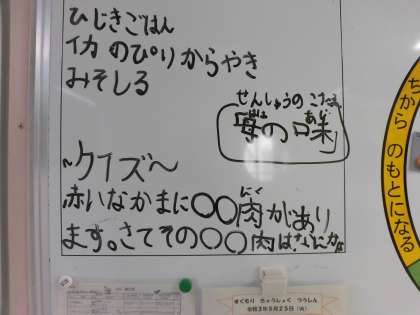 ひじきごはん
イカのぴりからやき
みそしる
せんしゅうのこたえ
「母の味」
はは あじ
~クイズ~
赤いなかまに〇〇肉があり
にく
ます。さてその〇〇肉はなにかな
ちからのもとになる
きゅうしょく つうしん
令和3年5月25日(火)